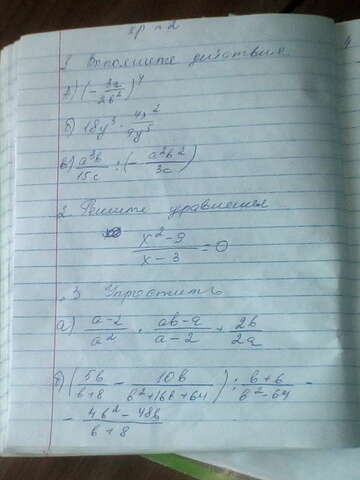 вр n 2
1 Выполните действия
а) (-3a/2b²)⁴
б) 18y³ · 4x²/9y⁵
в) a³b/15c : (-a²b²/3c)
2. Решите уравнения
x²-9/x-3 = 0
3 Упростить
а) a-2/a² · ab-a/a-2 + 2b/2a
б) (5b/b+8 - 10b/b²+16b+64) : b+6/b²-64 -
- 4b²-48b/b+8